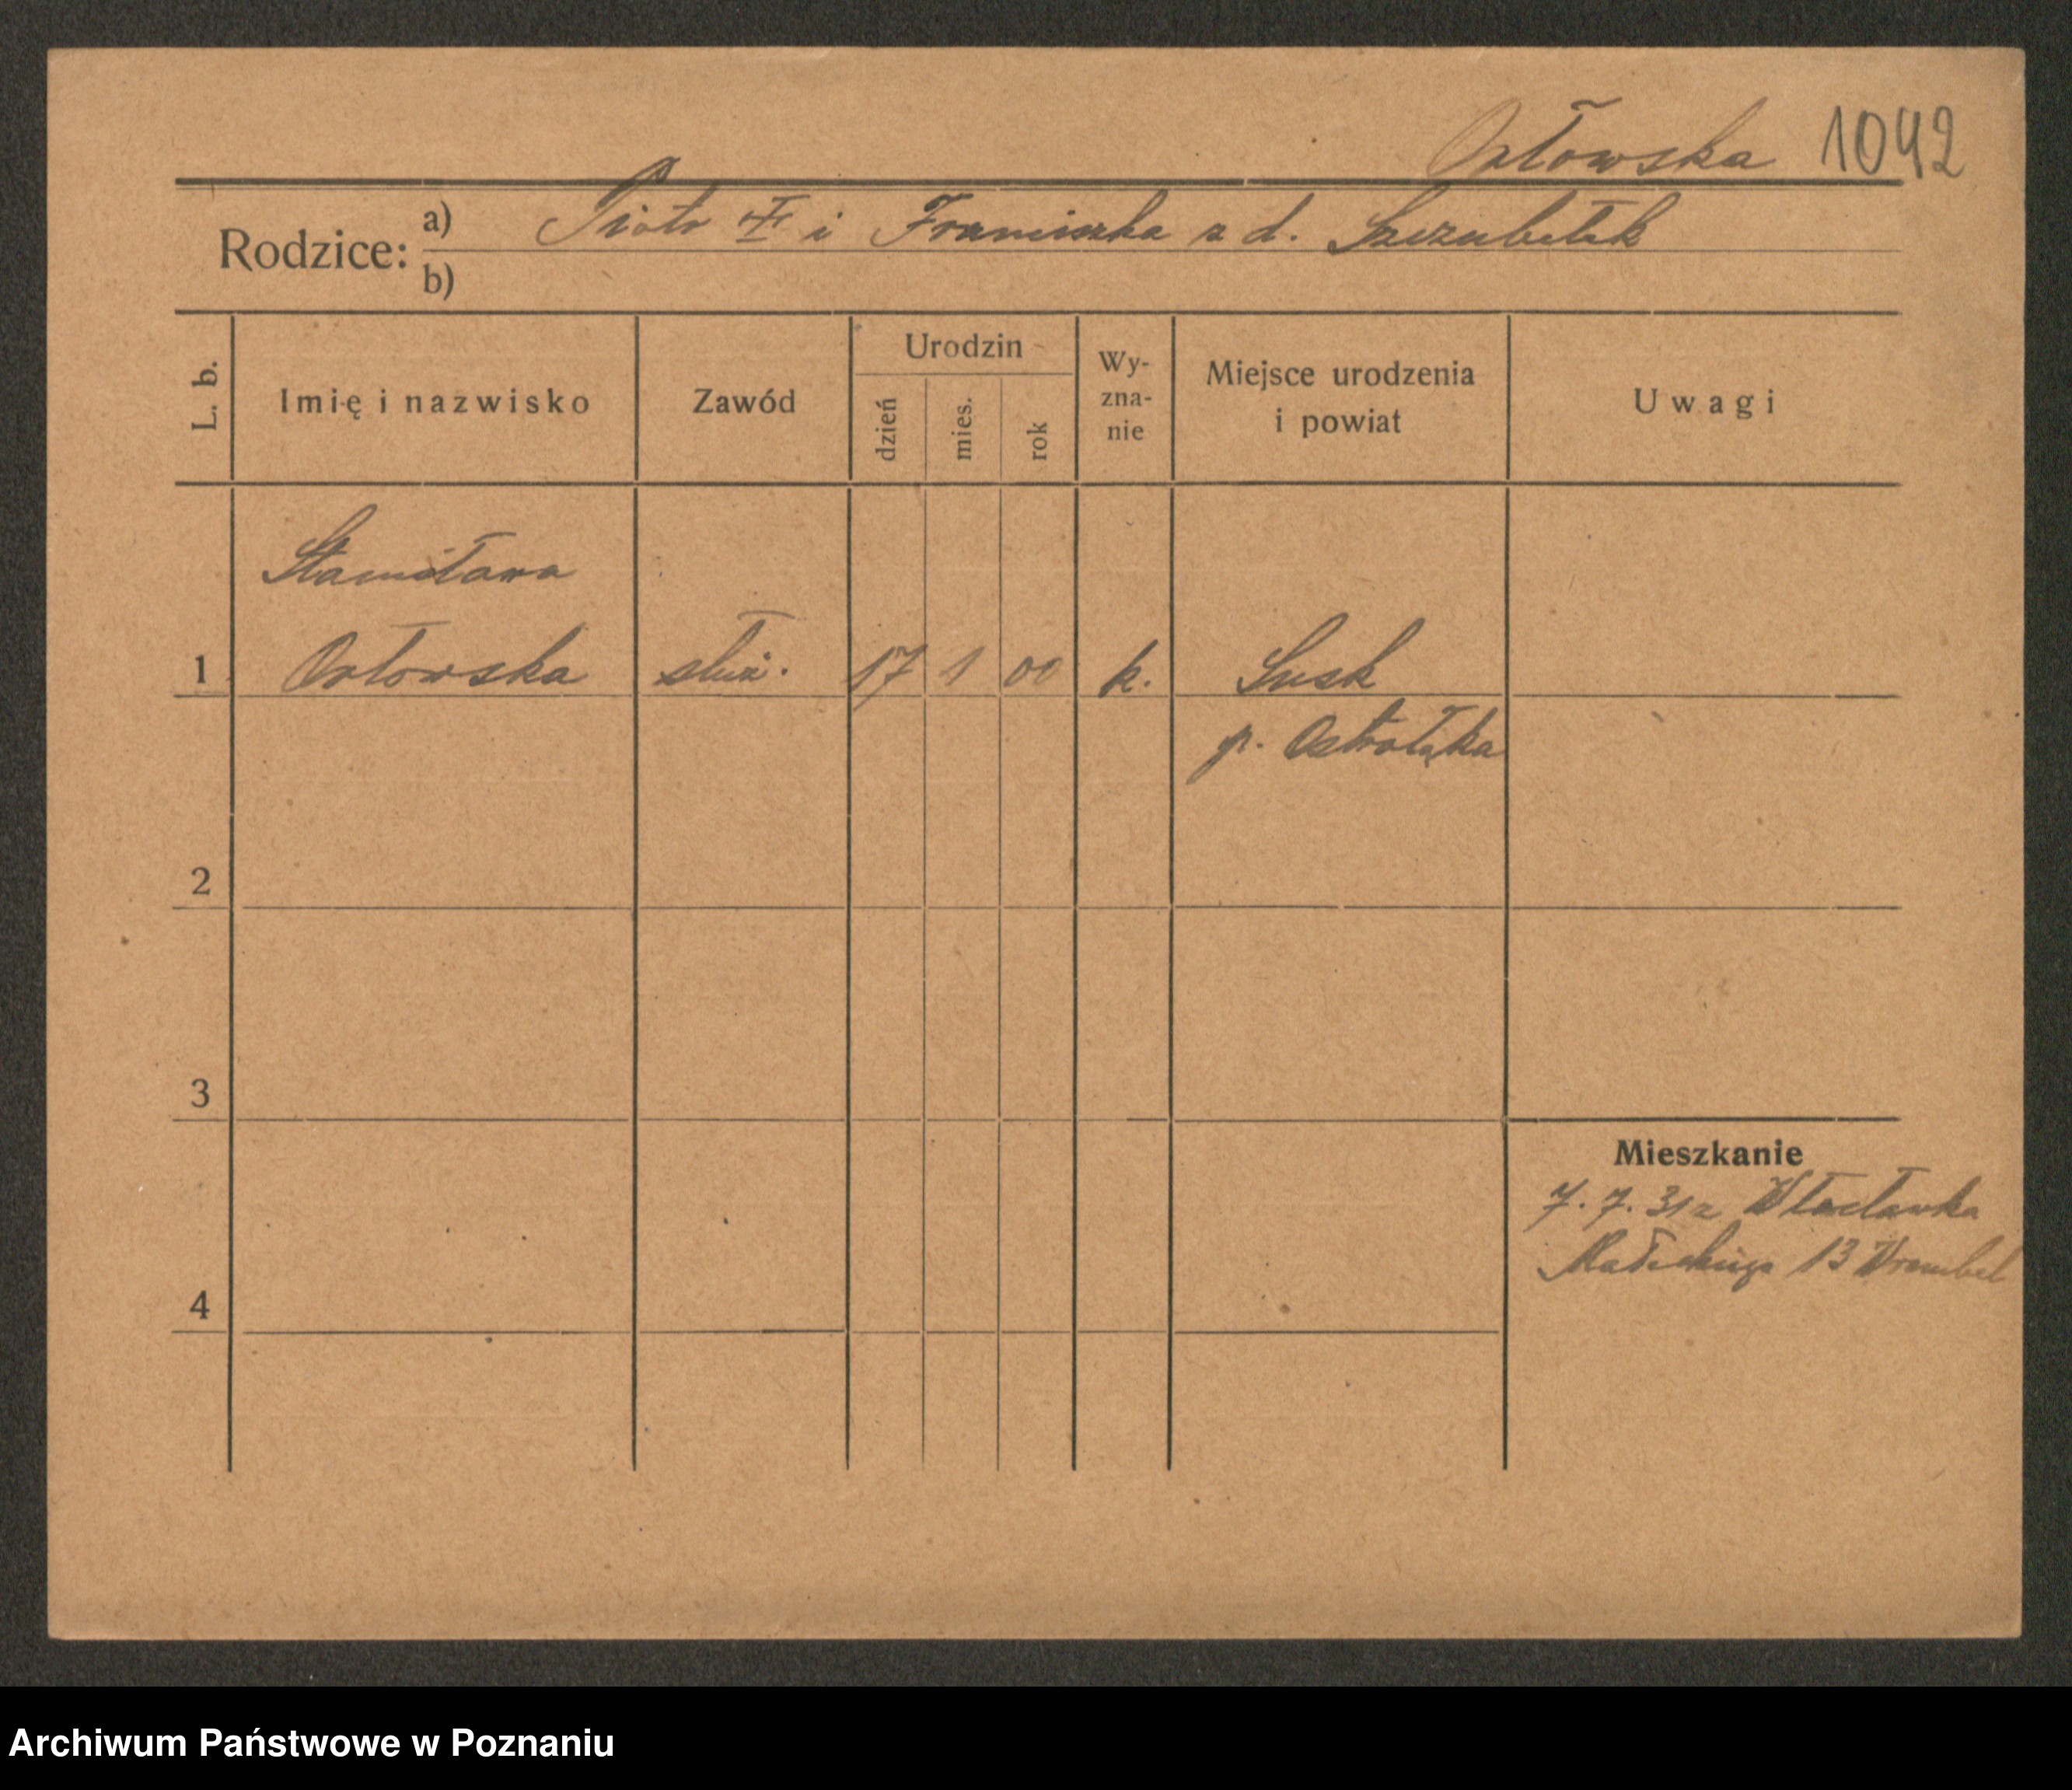 Orłowska 1042
Rodzice: a) Piotr i Franciszka z d. Szczubełek
b)
L. b. Imię i nazwisko Zawód Urodzin dzień mies. rok Wy-zna-nie Miejsce urodzenia i powiat Uwagi
Stanisława
1 Orłowska służ. 17 1 00 k. Susk
p. Ostrołęka
2
3
Mieszkanie
7. 7. 31 z Włocławka
Małeckiego 13 Wrembel
4
Archiwum Państwowe w Poznaniu